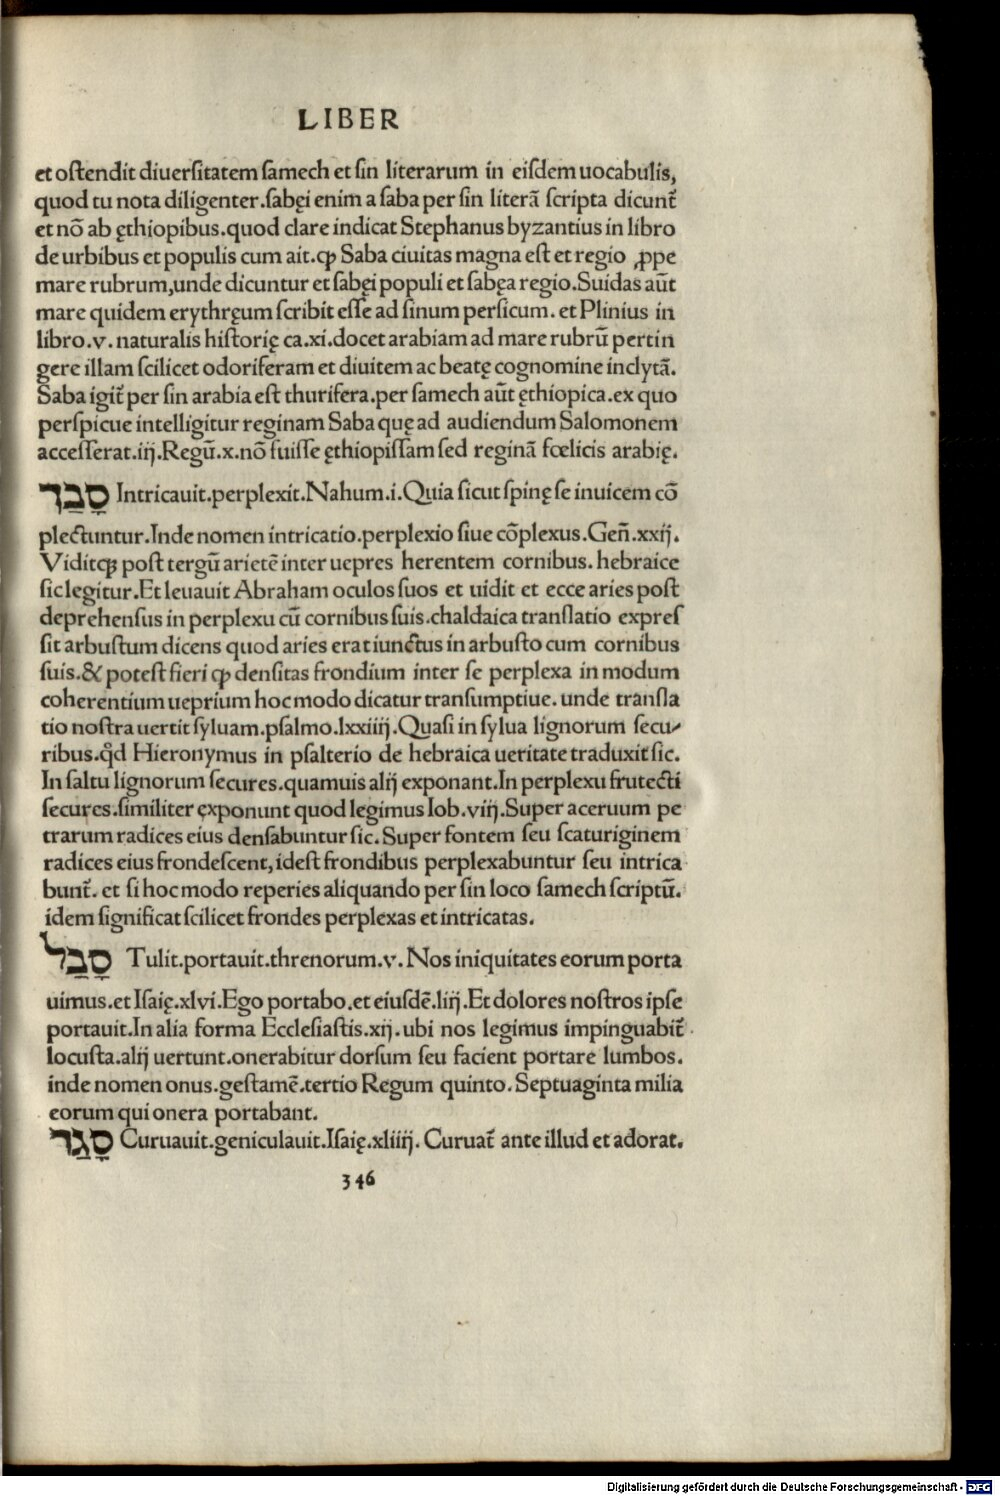 LIBER
et oſtendit diuerſitatem ſamech et ſin literarum in eiſdem uocabulis,
quod tu nota diligenter.ſabęi enim a ſaba per ſin literã ſcripta dicunt᷑
et nõ ab ęthiopibus.quod clare indicat Stephanus byzantius in libro
de urbibus et populis cum ait.ꝙ Saba ciuitas magna eſt et regio ꝓpe
mare rubrum,unde dicuntur et ſabęi populi et ſabęa regio.Suidas aũt
mare quidem erythręum ſcribit eſſe ad ſinum perſicum. et Plinius in
libro.v. naturalis hiſtorię ca.xi.docet arabiam ad mare rubrũ pertin
gere illam ſcilicet odoriferam et diuitem ac beatę cognomine inclytã.
Saba igit᷑ per ſin arabia eſt thurifera.per ſamech aũt ęthiopica.ex quo
perſpicue intelligitur reginam Saba quę ad audiendum Salomonem
acceſſerat.iij.Regũ.x.nõ fuiſſe ęthiopiſſam ſed reginã fœlicis arabię.
סָבַך Intricauit.perplexit.Nahum.i.Quia ſicut ſpinę ſe inuicem cõ
plectuntur.Inde nomen intricatio.perplexio ſiue cõplexus.Geñ.xxij.
Viditqꝫ poſt tergũ arietẽ inter uepres herentem cornibus. hebraice
ſic legitur.Et leuauit Abraham oculos ſuos et uidit et ecce aries poſt
deprehenſus in perplexu cũ cornibus ſuis.chaldaica tranſlatio expreſ
ſit arbuſtum dicens quod aries erat iunctus in arbuſto cum cornibus
ſuis.& poteſt fieri ꝙ denſitas frondium inter ſe perplexa in modum
coherentium ueprium hoc modo dicatur tranſumptiue. unde tranſla
tio noſtra uertit ſyluam.pſalmo.lxxiiij.Quaſi in ſylua lignorum ſecu⸗
ribus.qď Hieronymus in pſalterio de hebraica ueritate traduxit ſic.
In ſaltu lignorum ſecures.quamuis alij exponant.In perplexu frutecti
ſecures.ſimiliter ęxponunt quod legimus Iob.viij.Super aceruum pe
trarum radices eius denſabuntur ſic.Super fontem ſeu ſcaturiginem
radices eius frondeſcent,ideſt frondibus perplexabuntur ſeu intrica
bunt᷑. et ſi hoc modo reperies aliquando per ſin loco ſamech ſcriptũ.
idem ſignificat ſcilicet frondes perplexas et intricatas.
סָבַל Tulit.portauit.threnorum.v.Nos iniquitates eorum porta
uimus.et Iſaię.xlvi.Ego portabo.et eiuſdẽ.liij.Et dolores noſtros ipſe
portauit.In alia forma Eccleſiaſtis.xij.ubi nos legimus impinguabit᷑
locuſta.alij uertunt.onerabitur dorſum ſeu facient portare lumbos.
inde nomen onus.geſtamẽ.tertio Regum quinto.Septuaginta milia
eorum qui onera portabant.
סָגַד Curuauit.geniculauit.Iſaię.xliiij. Curuat᷑ ante illud et adorat.
346
Digitalisierung gefördert durch die Deutsche Forschungsgemeinschaft - DFG